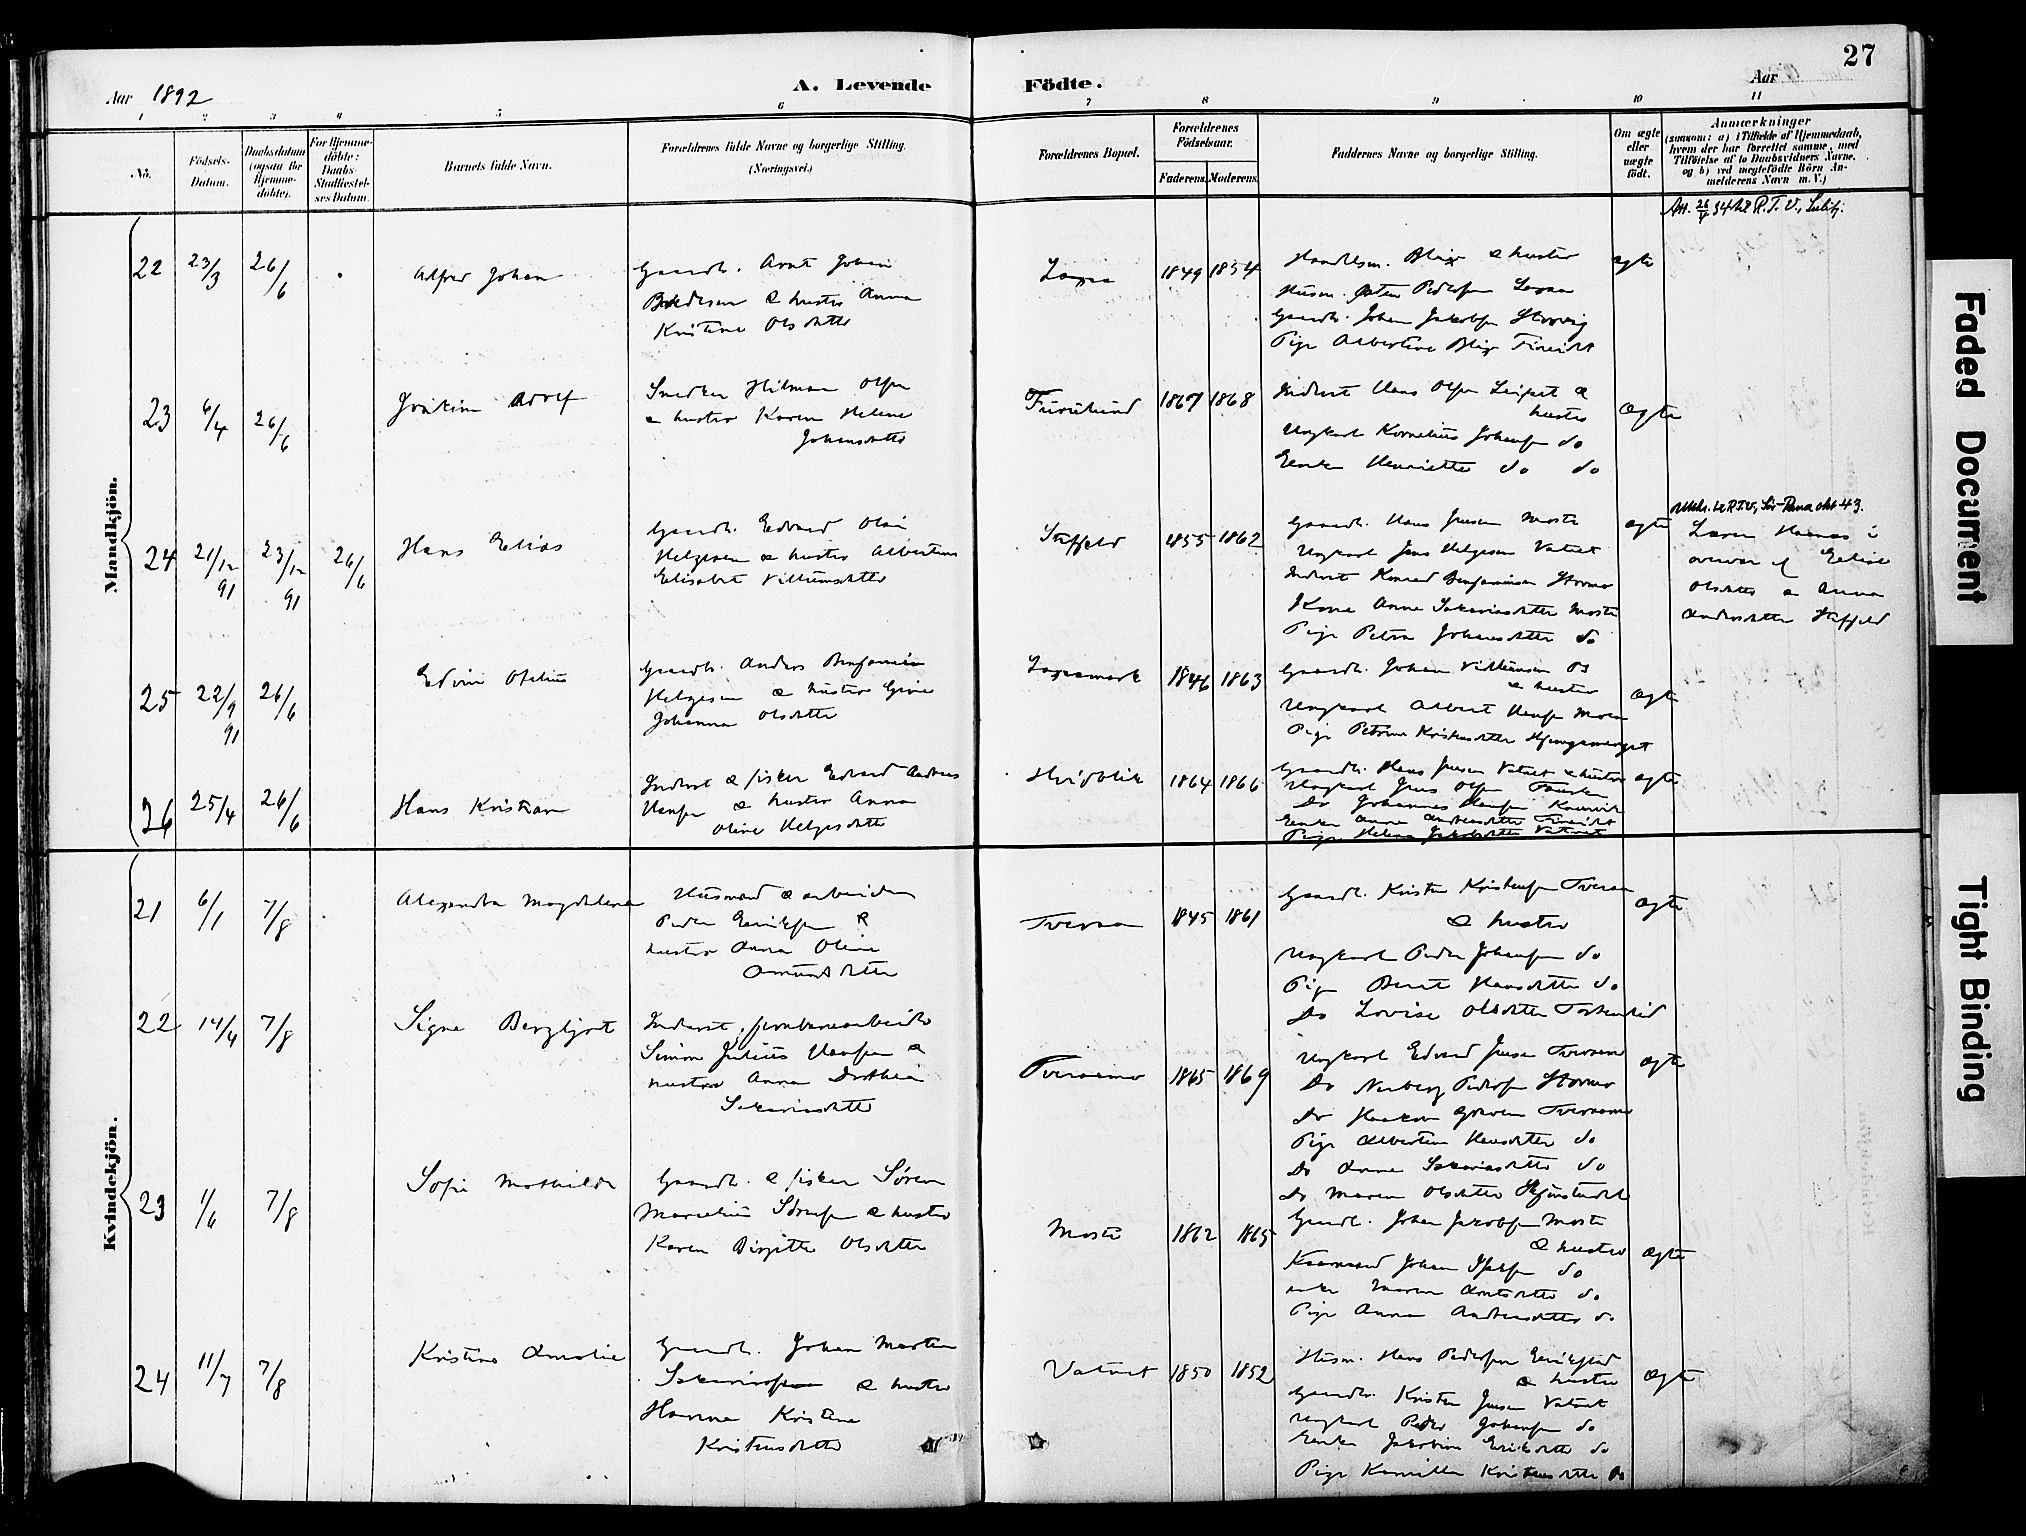 27
Aar 1892
A. Levende Födte.
Aar
1 2 3 4 5 6 7 8 9 10 11
No.
Födsels-Datum.
Daabsdatum (ogsaa for Hjemmedöbte).
For Hjemmedöbte: Daabs-Stadfæstelses Datum.
Barnets fulde Navn.
Forældrenes fulde Navne og borgerlige Stilling. (Næringsvei.)
Forældrenes Bopæl.
Forældrenes Födselsaar.
Faderens. Moderens.
Faddernes Navne og borgerlige Stilling.
Om ægte eller uægte födt.
Anmærkninger
(saasom: a) i Tilfælde af Hjemmedaab, hvem der har forrettet samme, med Tilföielse af to Daabsvidners Navne, og b) ved uægtefödte Börn Anmelderens Navn m. V.)
Mandkjön.
22 23/3 26/6
Alfred Johan
Gaardb. Arnt Johan
& hustro Anna
Kristine Olsdatter
1849 1854
Handelsm. Blix & hustro
Husm. Pedersen
Gaardb. Johan Jakobsen
Pige Albertine Blix
ægte
23 6/4 26/6
Joakim Adolf
Snedker Hilmar Olsen
& hustro Karen Helene
Johansdatter
Furulund
1867 1868
Inderst Hans Olsen &
hustro
Ungkarl Kornelius Johansen do
Enke Henriette do do
ægte
24 21/12 91 23/12 91 26/6
Hans Elias
Gaardb. Edvard Olai
Helgesen & hustro Albertine
Elisabet Villumsdatter
Staffjeld
1855 1862
Gaardb. Hans Jensen Moste
Ungkarl Jens Helgesen Vatnet
Inderst Konrad Benjaminsen Stormo
Kone Anna Sakariasdatter Moste
Pige Petra Johansdatter do
ægte
Olsdatter & Anna
Andersdatter Staffjeld
25 22/9 91 26/6
Edvin Ofelius
Gaardb. Anders Benjamin
Helgesen & hustro
Johanna Olsdatter
1846 1863
Gaardb. Johan
& hustro
Ungkarl Albert Hansen
Pige Petrine
ægte
26 25/4 26/6
Hans Kristian
Inderst & fisker Edvard Andreas
Hansen & hustro Anna
Oline Helgesdatter
Hvidblik
1864 1866
Gaardb. Hans Jensen Vatnet & hustro
Ungkarl Jens Olsen
Do Johannes Hansen
Enke Anna Andersdatter
Pige Helene Jakobsdatter Vatnet
ægte
Kvindekjön.
21 6/1 7/8
Alexandra Magdalena
Husmand & arbeider
Peder Eriksen &
hustro Anna Oline
Amundsdatter
Tveraa
1845 1861
Gaardb. Kristen Kristensen Tveraa
& hustro
Ungkarl Peder Johansen do
Pige Berit Hansdatter do
Do Lovise Olsdatter
ægte
22 14/4 7/8
Signe Bergljot
Inderst, jernbanearbeider
Simon Julius Hansen &
hustro Anna Dorthea
Sakariasdatter
Tveraamo
1865 1869
Ungkarl Edvard Jensen Tveraamo
Do Pedersen Stormo
Do Haakon Tveraamo
Pige Albertine Hansdatter do
Do Anna Sakariasdatter do
Do Maren Olsdatter
ægte
23 1/6 7/8
Sofie Mathilde
Gaardb. & fisker Sören
Marselius Sörensen & hustro
Karen Birgitte Olsdatter
Moste
1862 1865
Gaardb. Johan Jakobsen Moste
& hustro
Kaarmand Johan do
enke Maren do
Pige Anna Andreasdatter do
ægte
24 11/7 7/8
Kristine Amalie
Gaardb. Johan Martin
Sakariassen & hustro
Hanna Kristine
Kristensdatter
Vatnet
1850 1852
Husm. Hans Pedersen
& hustro
Gaardb. Kristen Jensen Vatnet
Ungkarl Peder Johansen do
Enke Jakobine Eriksdatter do
Pige Kamilla Kristensdatter do
ægte
Faded Document
Tight Binding